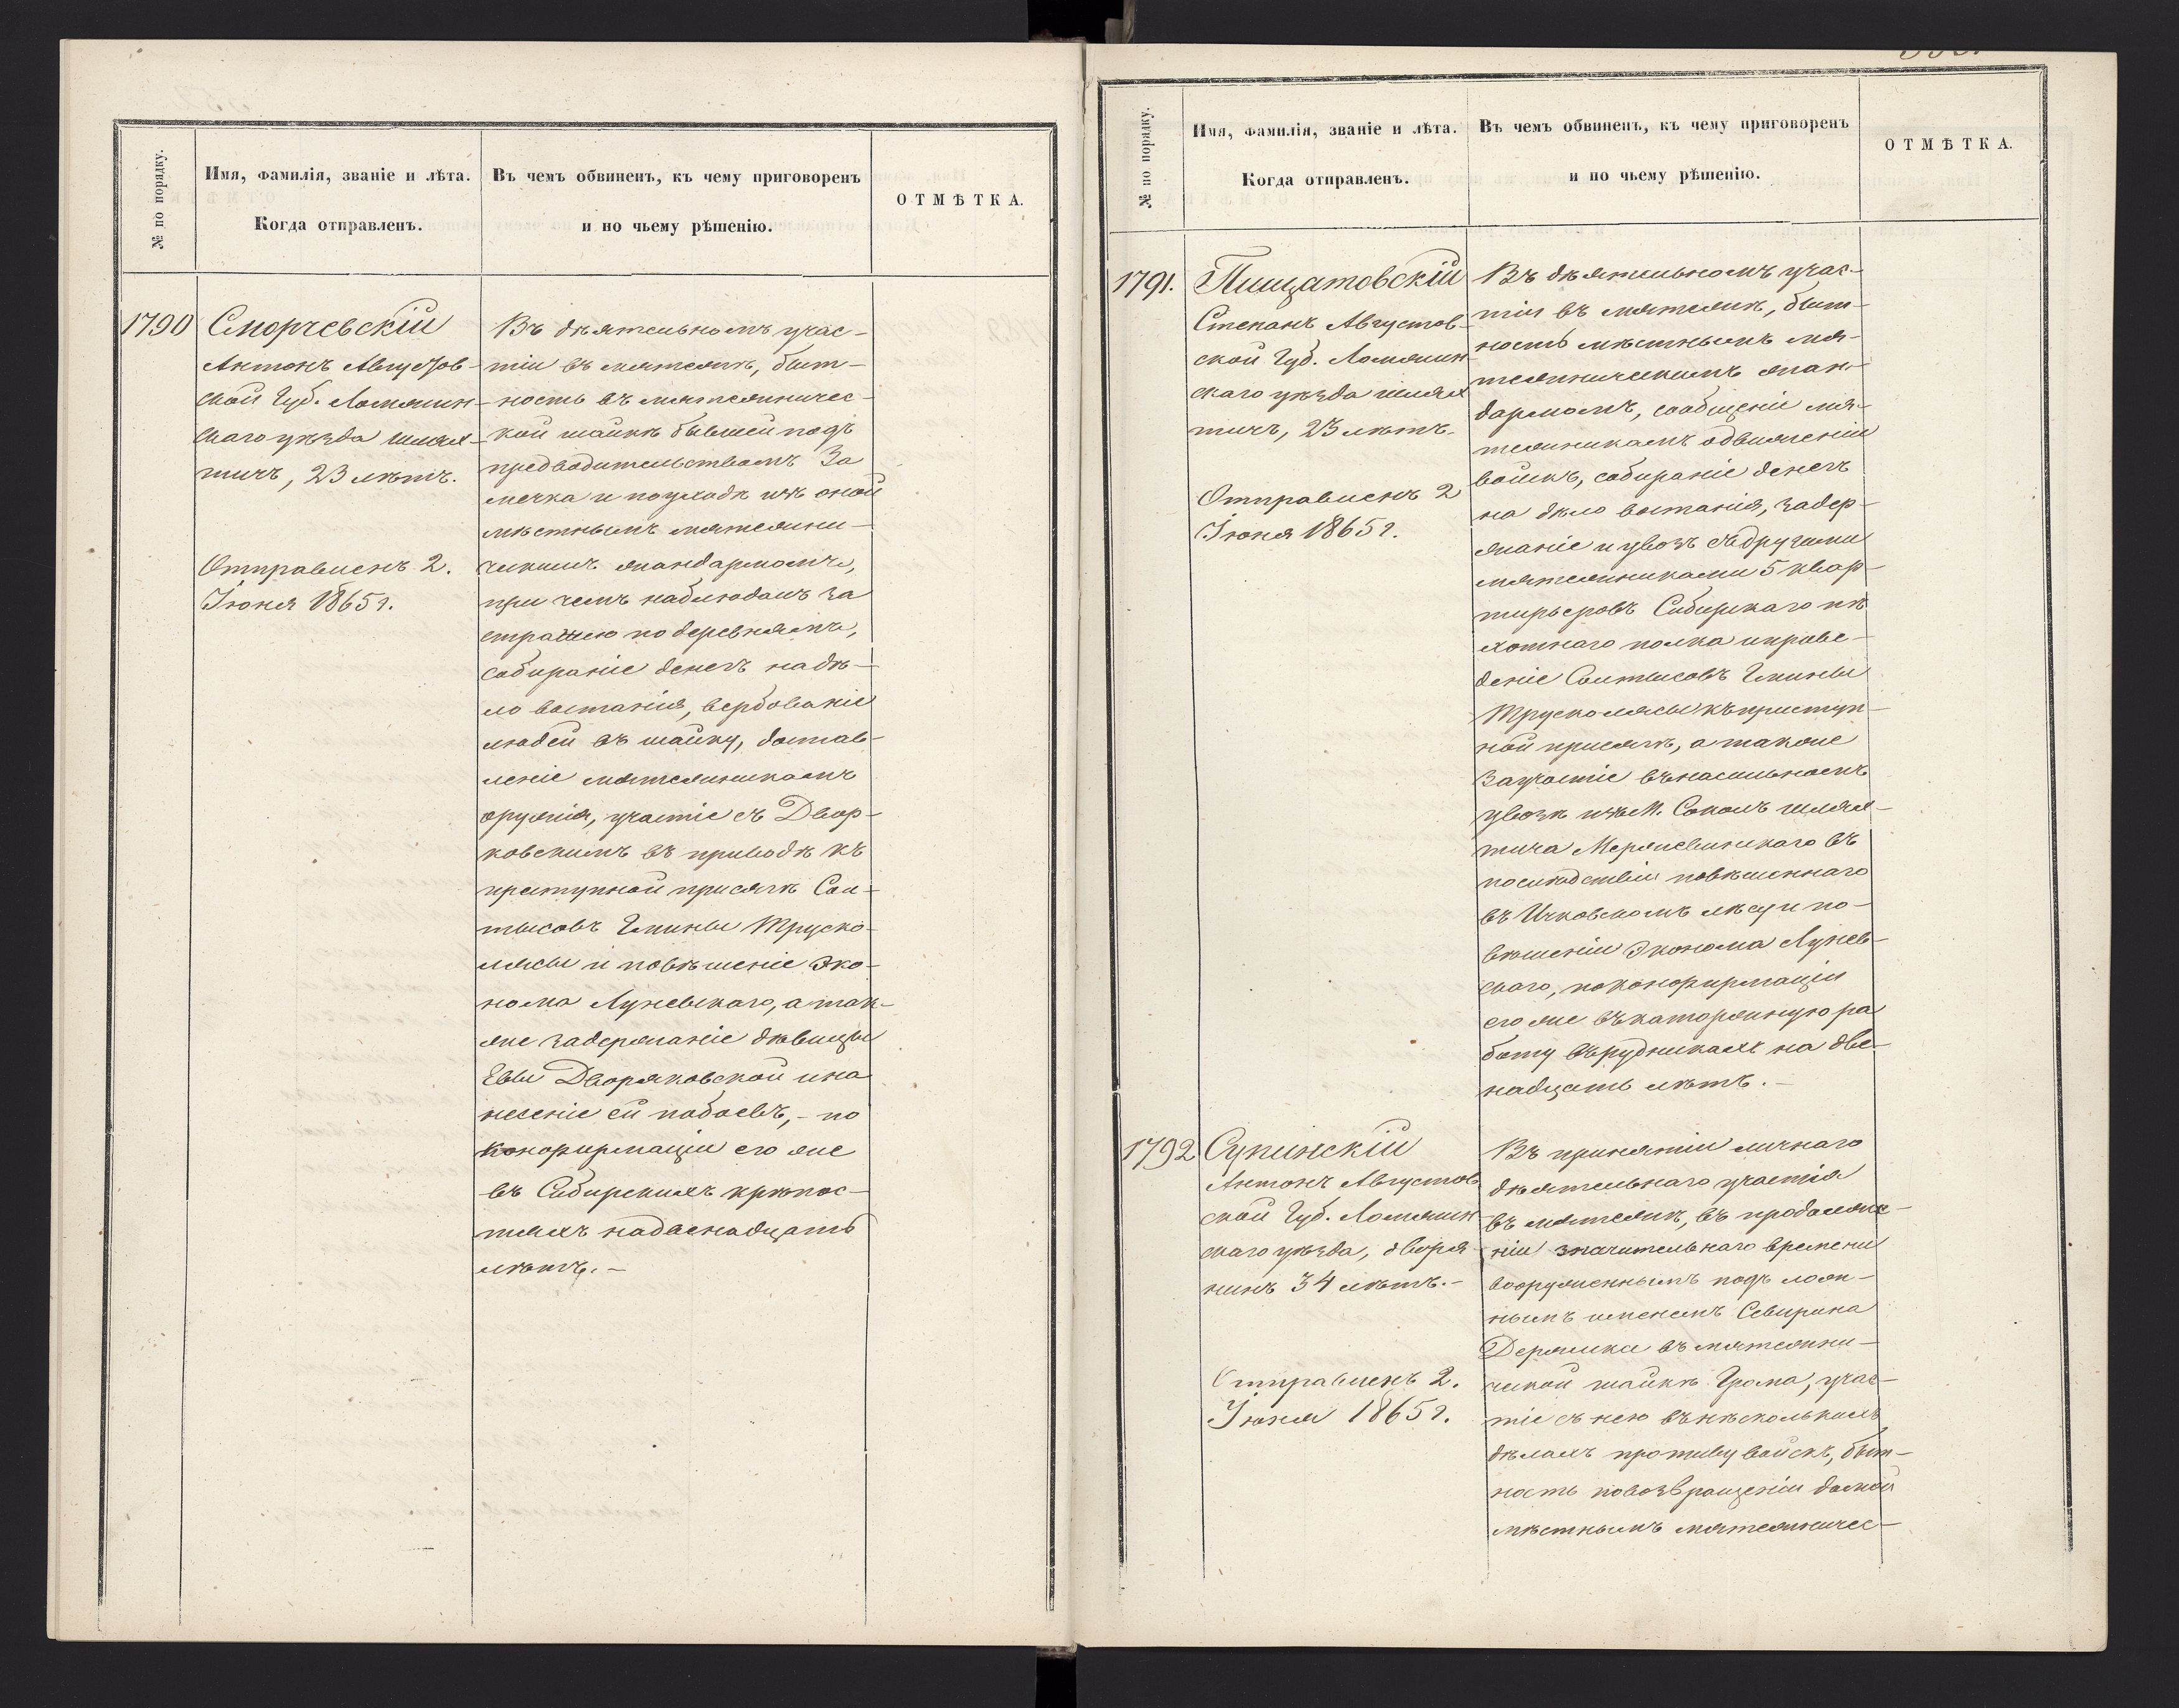 № по порядку.
Имя, фамилія, званіе и лѣта.
Когда отправленъ.
Въ чемъ обвиненъ, къ чему приговоренъ
и по чьему рѣшенію.
ОТМѢТКА.
1790
Сморчевскій
Антонъ Августов-
ской Губ. Ломжин-
скаго уѣзда шлях-
тичъ, 23 лѣтъ.
Отправленъ 2.
Іюня 1865 г.
Въ дѣятельномъ учас-
тіи въ мятежѣ, быт-
ность въ мятежничес-
кой шайкѣ бывшей подъ
предводительствомъ За
мечка и по уходѣ изъ оной
мѣстнымъ мятежни-
ческимъ жандармомъ,
при чемъ наблюдалъ за
стражею по деревнямъ,
собираніе денегъ на дѣ-
ло востанія, вербованіе
людей въ шайку, достав-
леніе мятежникамъ
оружія, участіе съ Двор-
ковскимъ въ приводѣ къ
преступной присягѣ Сол-
тысовъ Гмины Труско-
лясы и повѣшеніе эко-
нома Луневскаго, а так-
же задержаніе дѣвицы
Евы Дворжковской и на
несеніе ей побоевъ, - по
конфирмаціи его же
въ Сибирскихъ крѣпос-
тяхъ на двенадцать
лѣтъ. -
№ по порядку.
Имя, фамилія, званіе и лѣта.
Когда отправленъ.
Въ чемъ обвиненъ, къ чему приговоренъ
и по чьему рѣшенію.
ОТМѢТКА.
1791.
Пищатовскій
Степанъ Августов-
ской Губ. Ломжин-
скаго уѣзда шлях
тичъ, 23 лѣтъ.
Отправленъ 2
Іюня 1865 г.
Въ дѣятельномъ учас-
тіи въ мятежѣ, быт-
ность мѣстнымъ мя-
тежническимъ жан-
дармомъ, сообщеніе мя-
тежникамъ о движеніи
войскъ, собираніе денегъ
на дѣло востанія, задер-
жаніе и увозъ съ другими
мятежниками 5 квар-
тирьеровъ Сибирскаго пѣ
хотнаго полка и приве-
деніе Солтысовъ Гмины
Трусколясы къ преступ-
ной присягѣ, а также
за участіе въ насильномъ
увозѣ изъ М. Соколъ шлях-
тича Мержевинскаго въ
послѣдствіи повѣшеннаго
въ Ичковскомъ лѣсу и по-
вѣшеніи Эконома Лунев-
скаго, по конфирмаціи
его же въ каторжную ра
боту въ рудникахъ на две-
надцать лѣтъ. -
1792
Супинскій
Антонъ Августов
ской Губ. Ломжин-
скаго уѣзда, дворя
нинъ 34 лѣтъ. -
Отправленъ 2.
Іюня 1865 г.
Въ принятіи личнаго
дѣятельнаго участія
въ мятежѣ, въ продолже-
ніи значительнаго времени
вооруженнымъ подъ лож-
нымъ именемъ Северина
въ мятежни-
ческой шайкѣ Грома, учас-
тіе съ нею въ нѣсколькихъ
дѣлахъ противу войскъ, быт-
ность по возвращеніи домой
мѣстнымъ мятежничес-